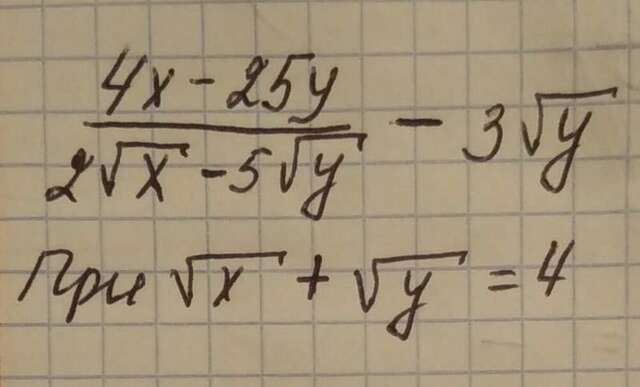 (4x - 25y)/(2√x - 5√y) - 3√y
При √x + √y = 4